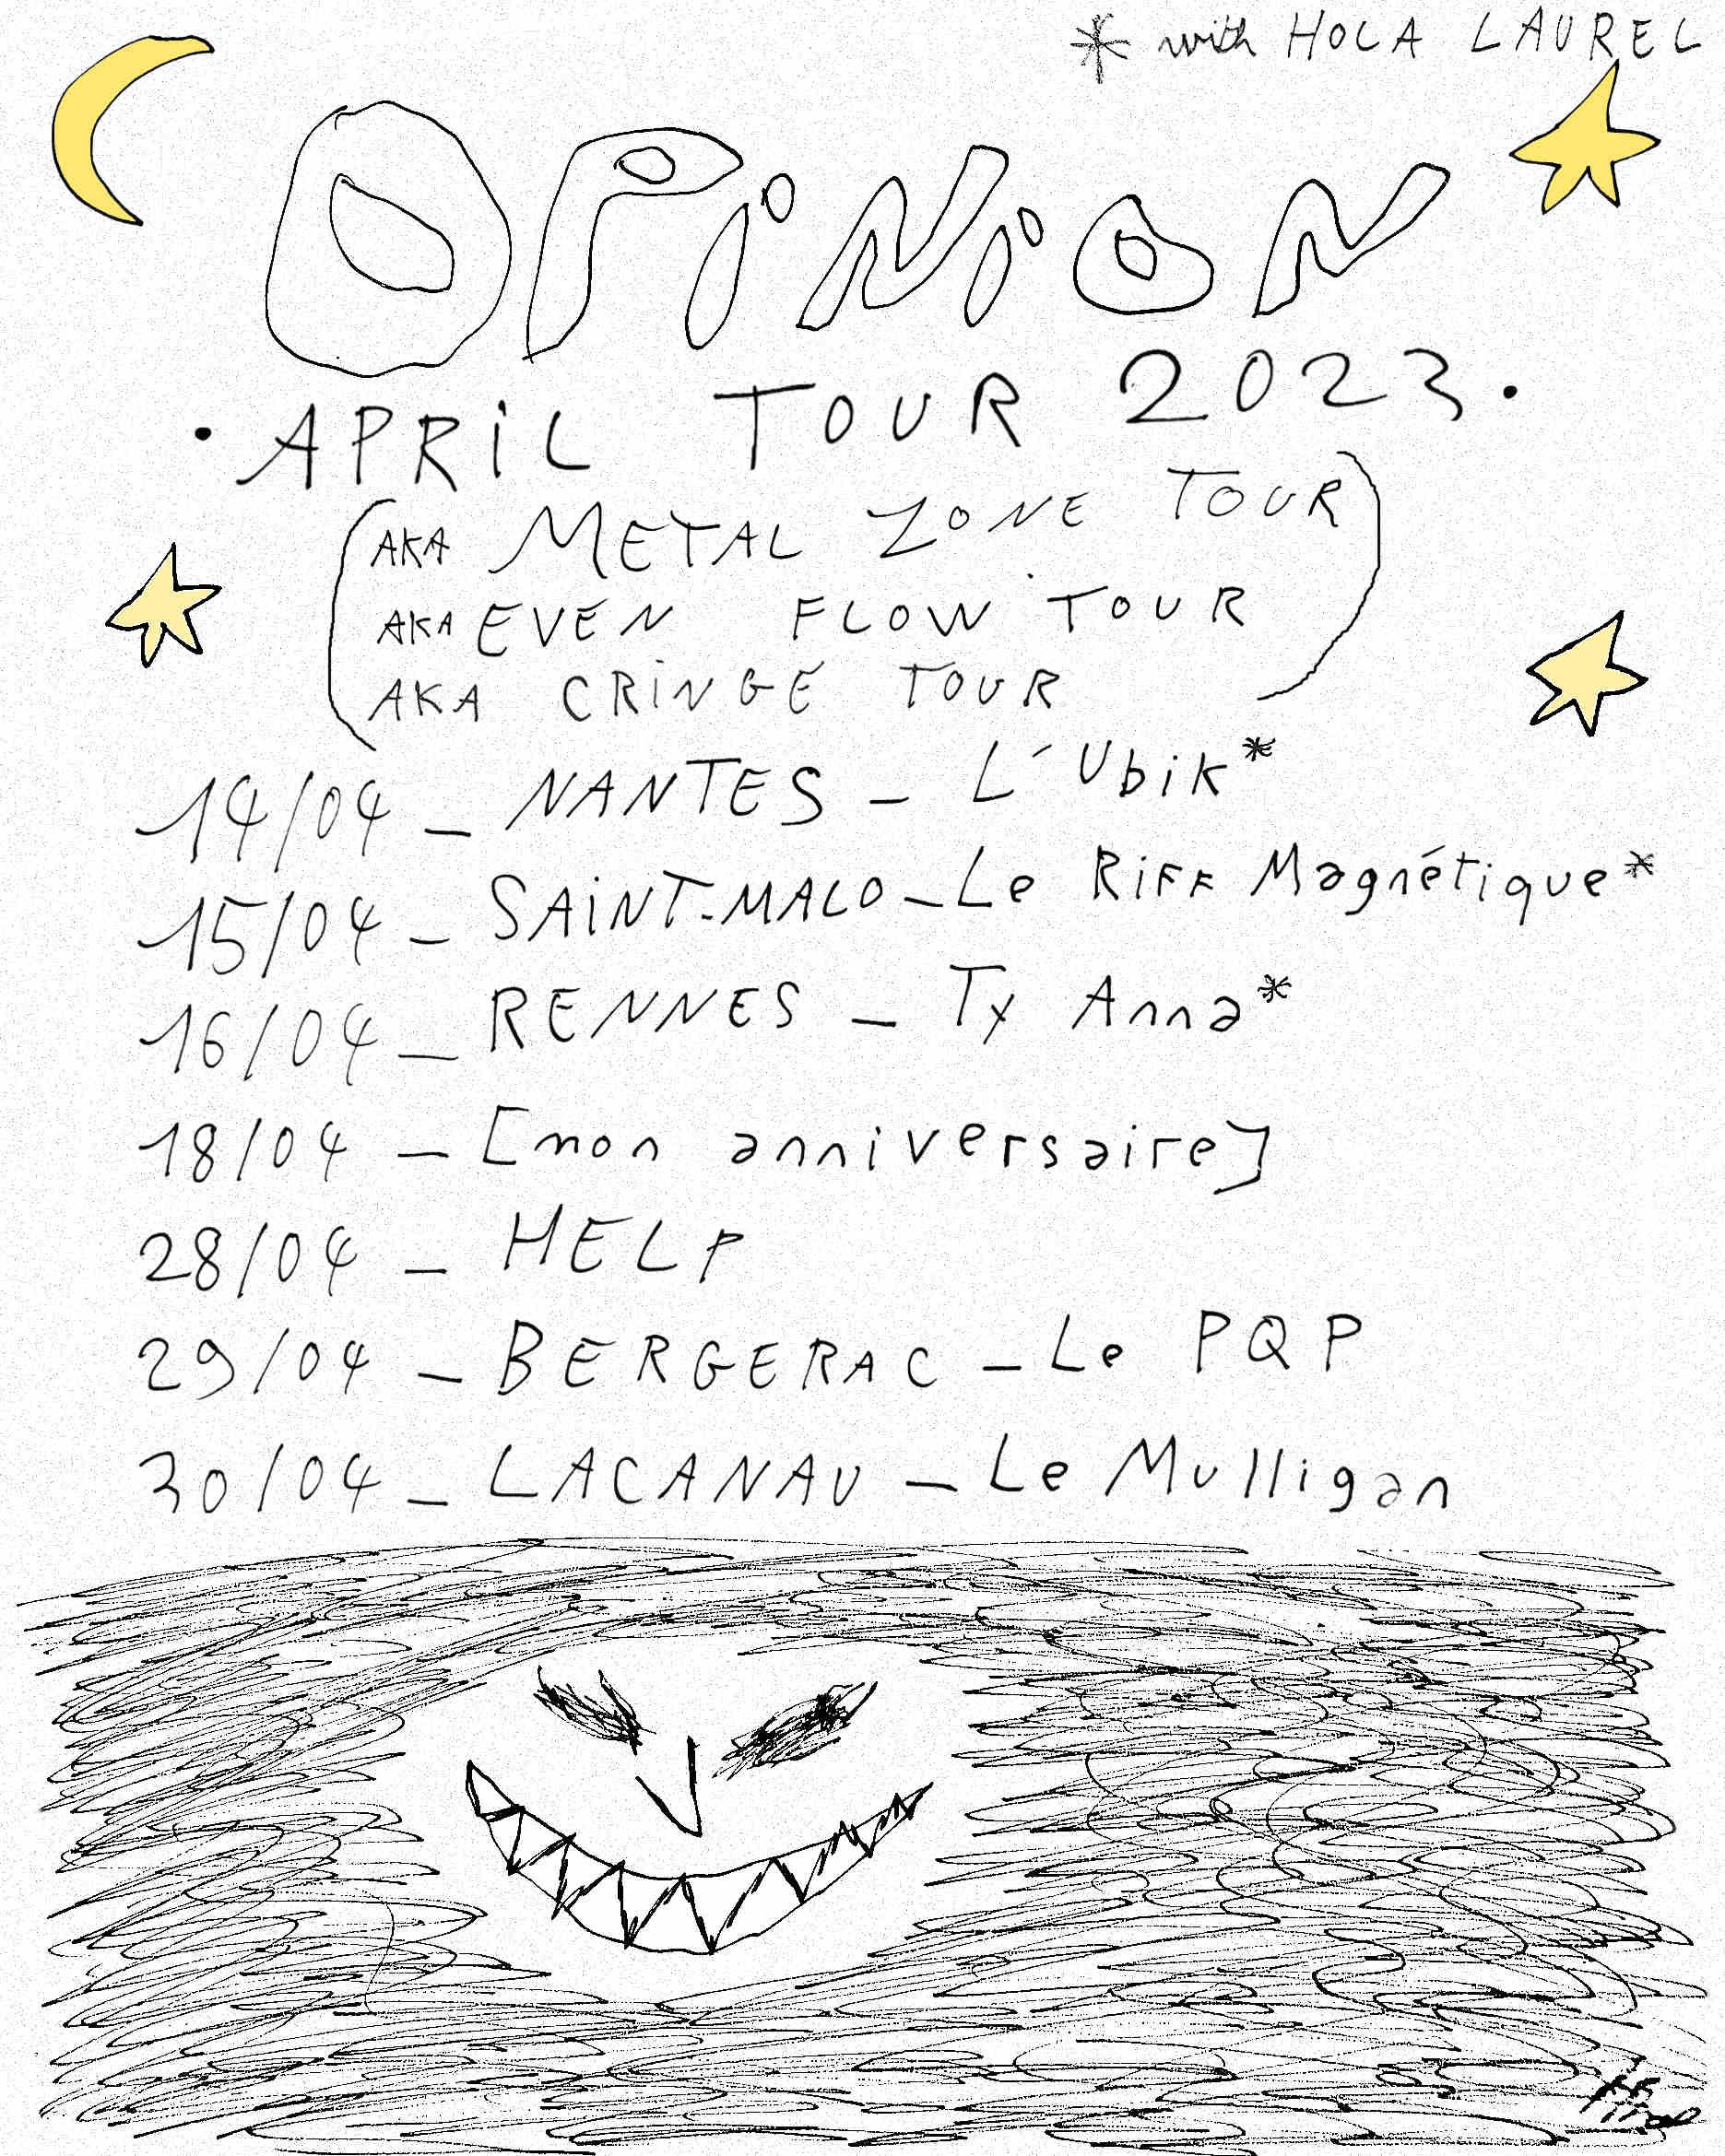 * with HOLA LAUREL
OPiNiON
• APRiL TOUR 2023 •
(AKA METAL ZONE TOUR
AKA EVEN FLOW TOUR
AKA CRiNGE TOUR)
14/04 _ NANTES _ L'Ubik*
15/04 _ SAiNT-MALO _ Le RiFF Magnétique*
16/04 _ RENNES _ Ty Anna*
18/04 _ [mon anniversaire]
28/04 _ HELP
29/04 _ BERGERAC _ Le PQP
30/04 _ LACANAU _ Le Mulligan